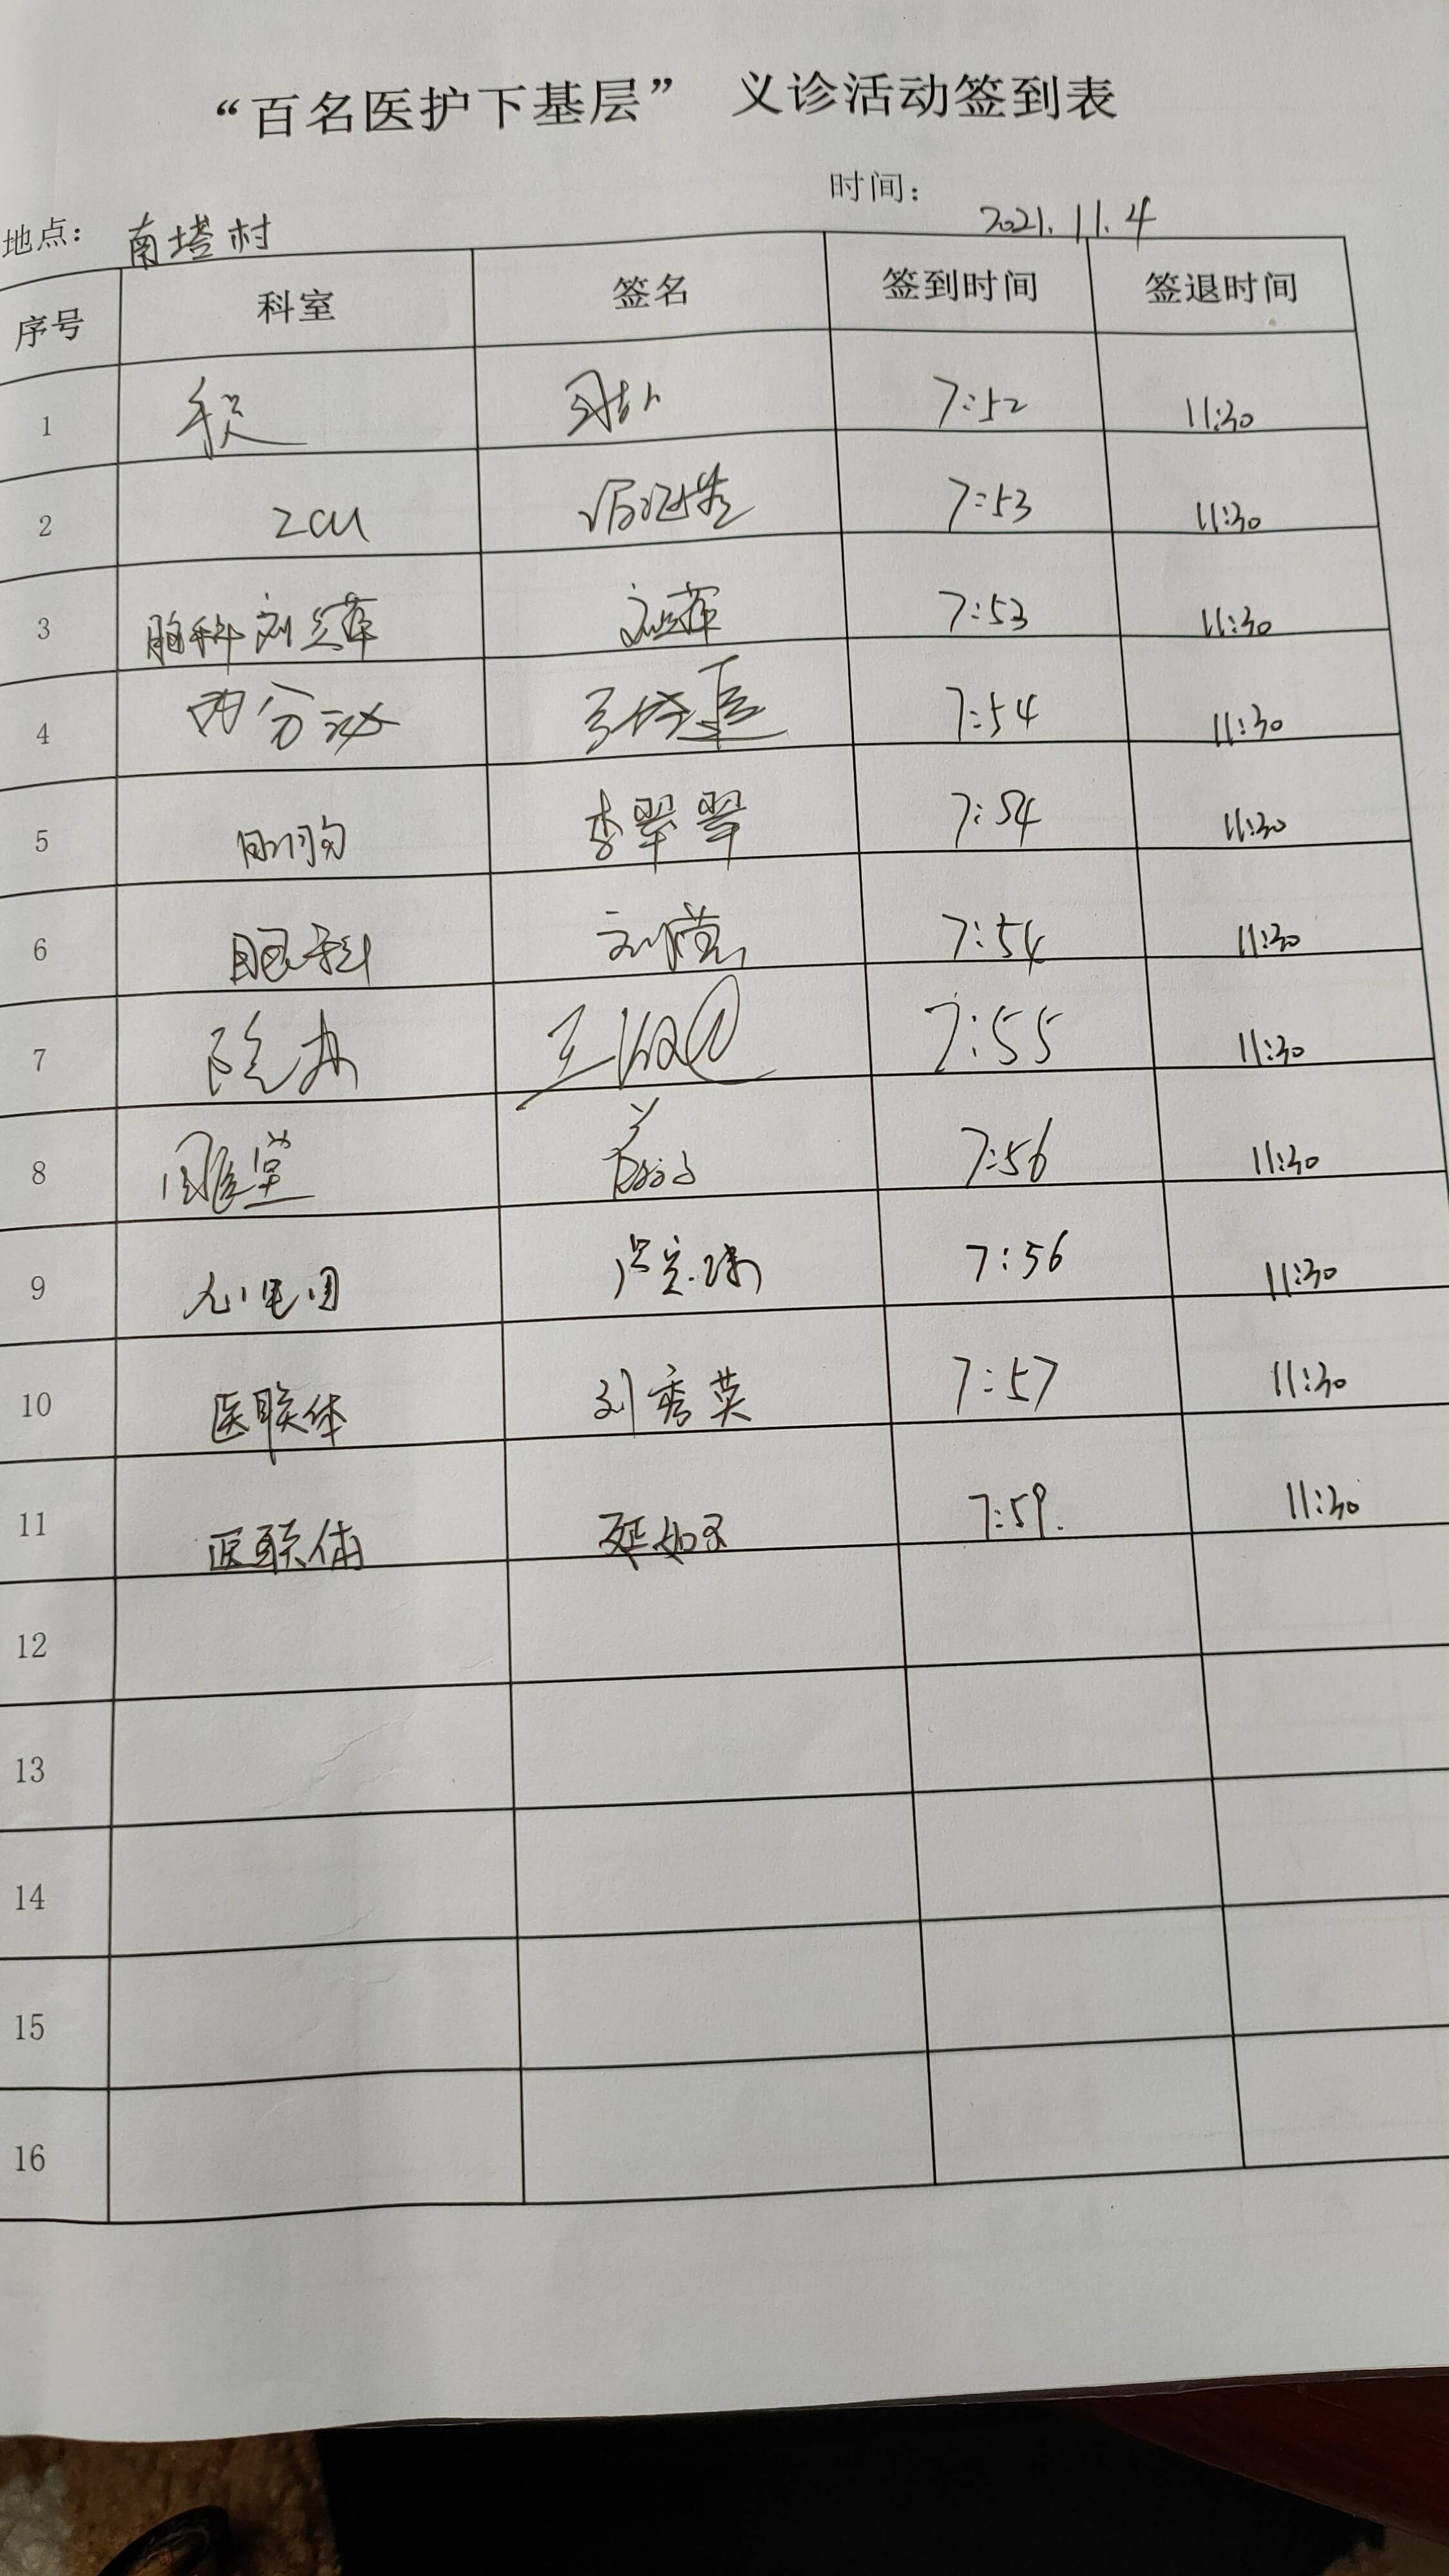 “百名医护下基层” 义诊活动签到表
时间: 2021.11.4
地点: 南塔村
序号 科室 签名 签到时间 签退时间
1 7:52 11:30
2 ICU 7:53 11:30
3 胸科 刘兰萍 刘兰萍 7:53 11:30
4 内分泌 7:54 11:30
5 李翠翠 7:54 11:30
6 眼科 7:54 11:30
7 院办 7:55 11:30
8 国医堂 7:56 11:30
9 心电图 7:56 11:30
10 医联体 刘秀英 7:57 11:30
11 医联体 7:59. 11:30
12
13
14
15
16